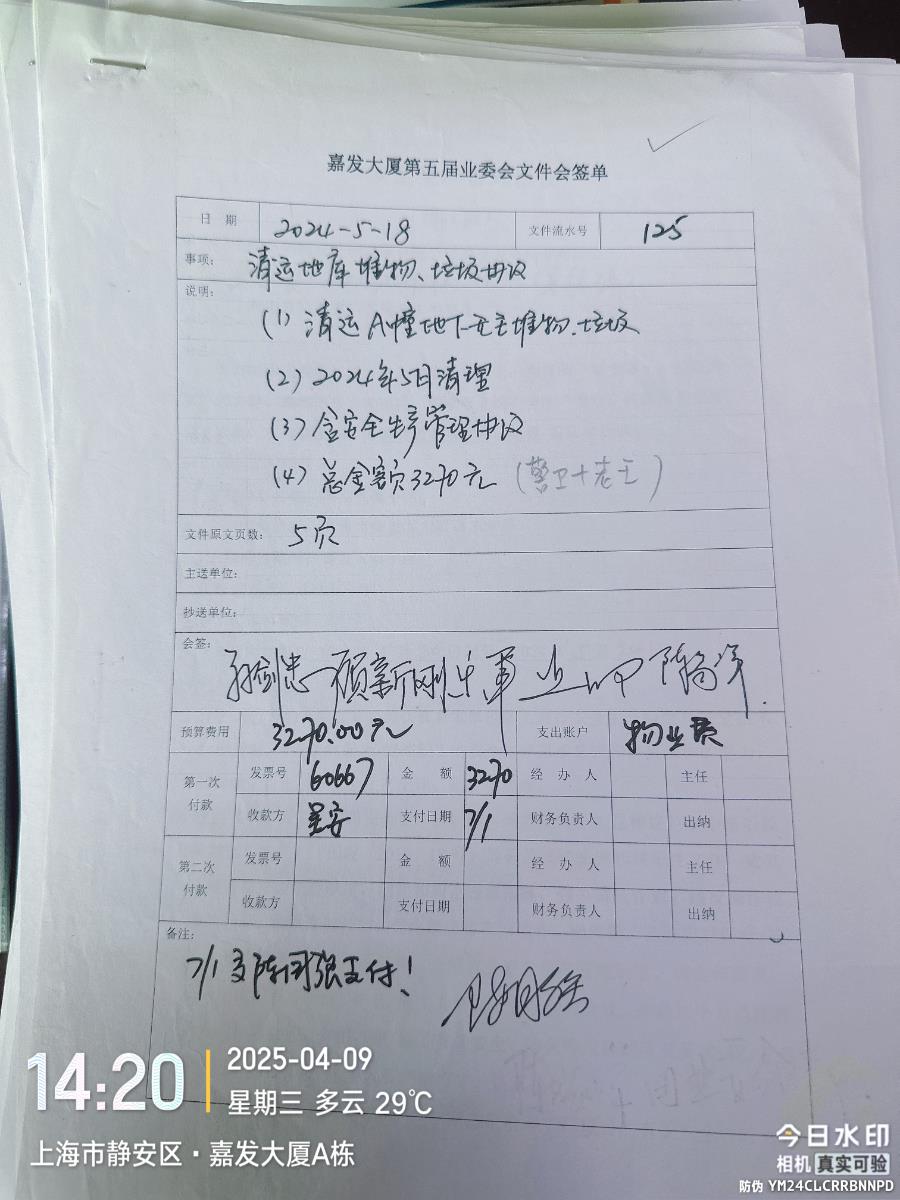 嘉发大厦第五届业委会文件会签单
日 期 2024-5-18 文件流水号 125
事项: 清运地库堆物、垃圾协议
说明:
(1) 清运A幢地下无主堆物、垃圾
(2) 2024年5月清理
(3) 含安全生产管理协议
(4) 总金额3270元 (警卫+老王)
文件原文页数: 5页
主送单位:
抄送单位:
会签: 顾新刚
预算费用 3270.00元 支出账户 物业费
第一次付款 发票号 60667 金 额 3270 经 办 人 主任
收款方 支付日期 7/1 财务负责人 出纳
第二次付款 发票号 金 额 经 办 人 主任
收款方 支付日期 财务负责人 出纳
备注:
7/1 交陈国强支付!
14:20 2025-04-09
星期三 多云 29℃
上海市静安区·嘉发大厦A栋
今日水印
相机 真实可验
防伪 YM24CLCRRBNNPD